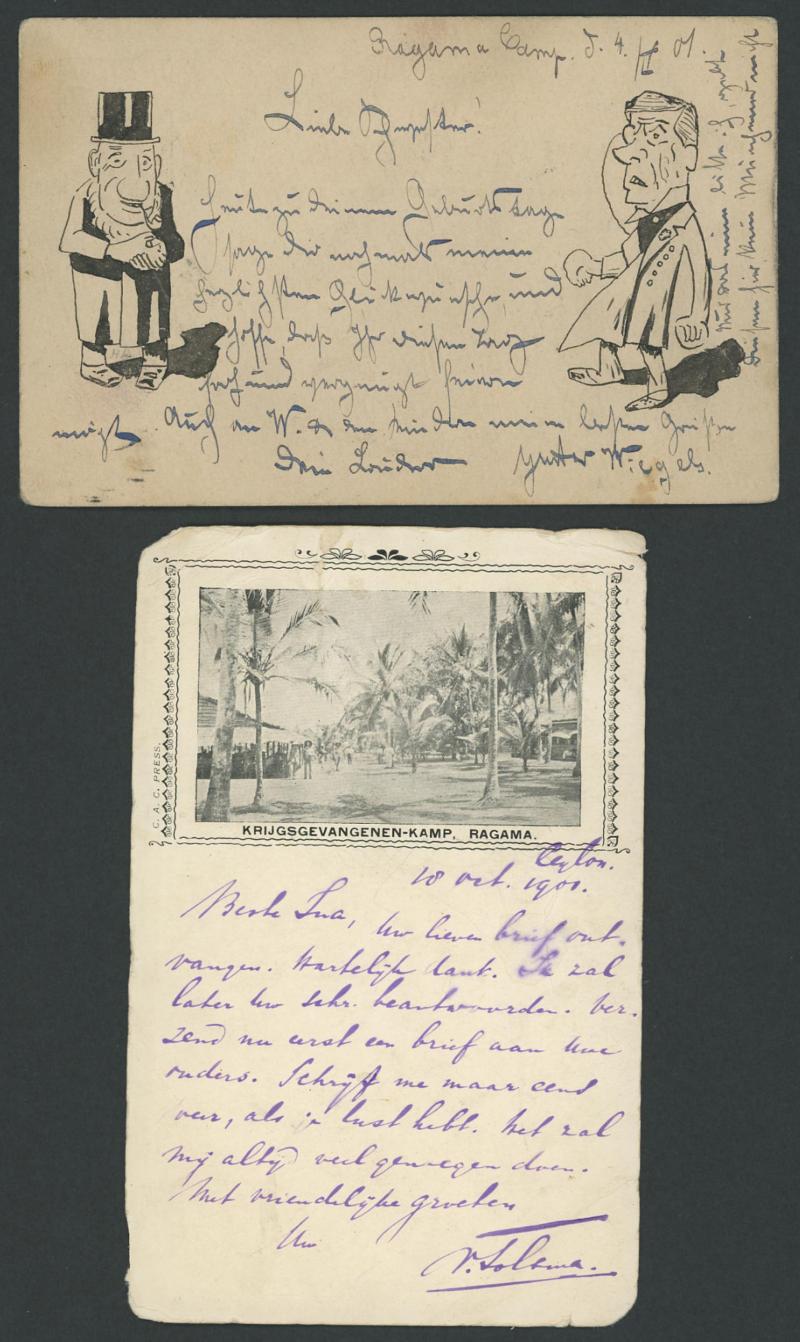 Ragama Camp. d. 4. 01.
Liebe Schwester!
Heute zu deinem Geburtstage
sage dir nochmals meine
herzlichsten Glückwünsche und
hoffe, daß Ihr diesen Tag
froh und vergnügt feiern
mögt. Auch an W. & den Kindern meine besten Grüße
Dein Bruder Wiegels.
C. A. C. PRESS.
KRIJGSGEVANGENEN-KAMP, RAGAMA.
Ceylon.
18 Oct. 1901.
Beste Ina, Uw lieven brief ont-
vangen. Hartelijk dank. Ik zal
later Uw schr. beantwoorden. Ver-
zend nu eerst een brief aan Uwe
ouders. Schrijf me maar eens
weer, als je lust hebt. Het zal
mij altijd veel genoegen doen.
Met vriendelijke groeten
Uw